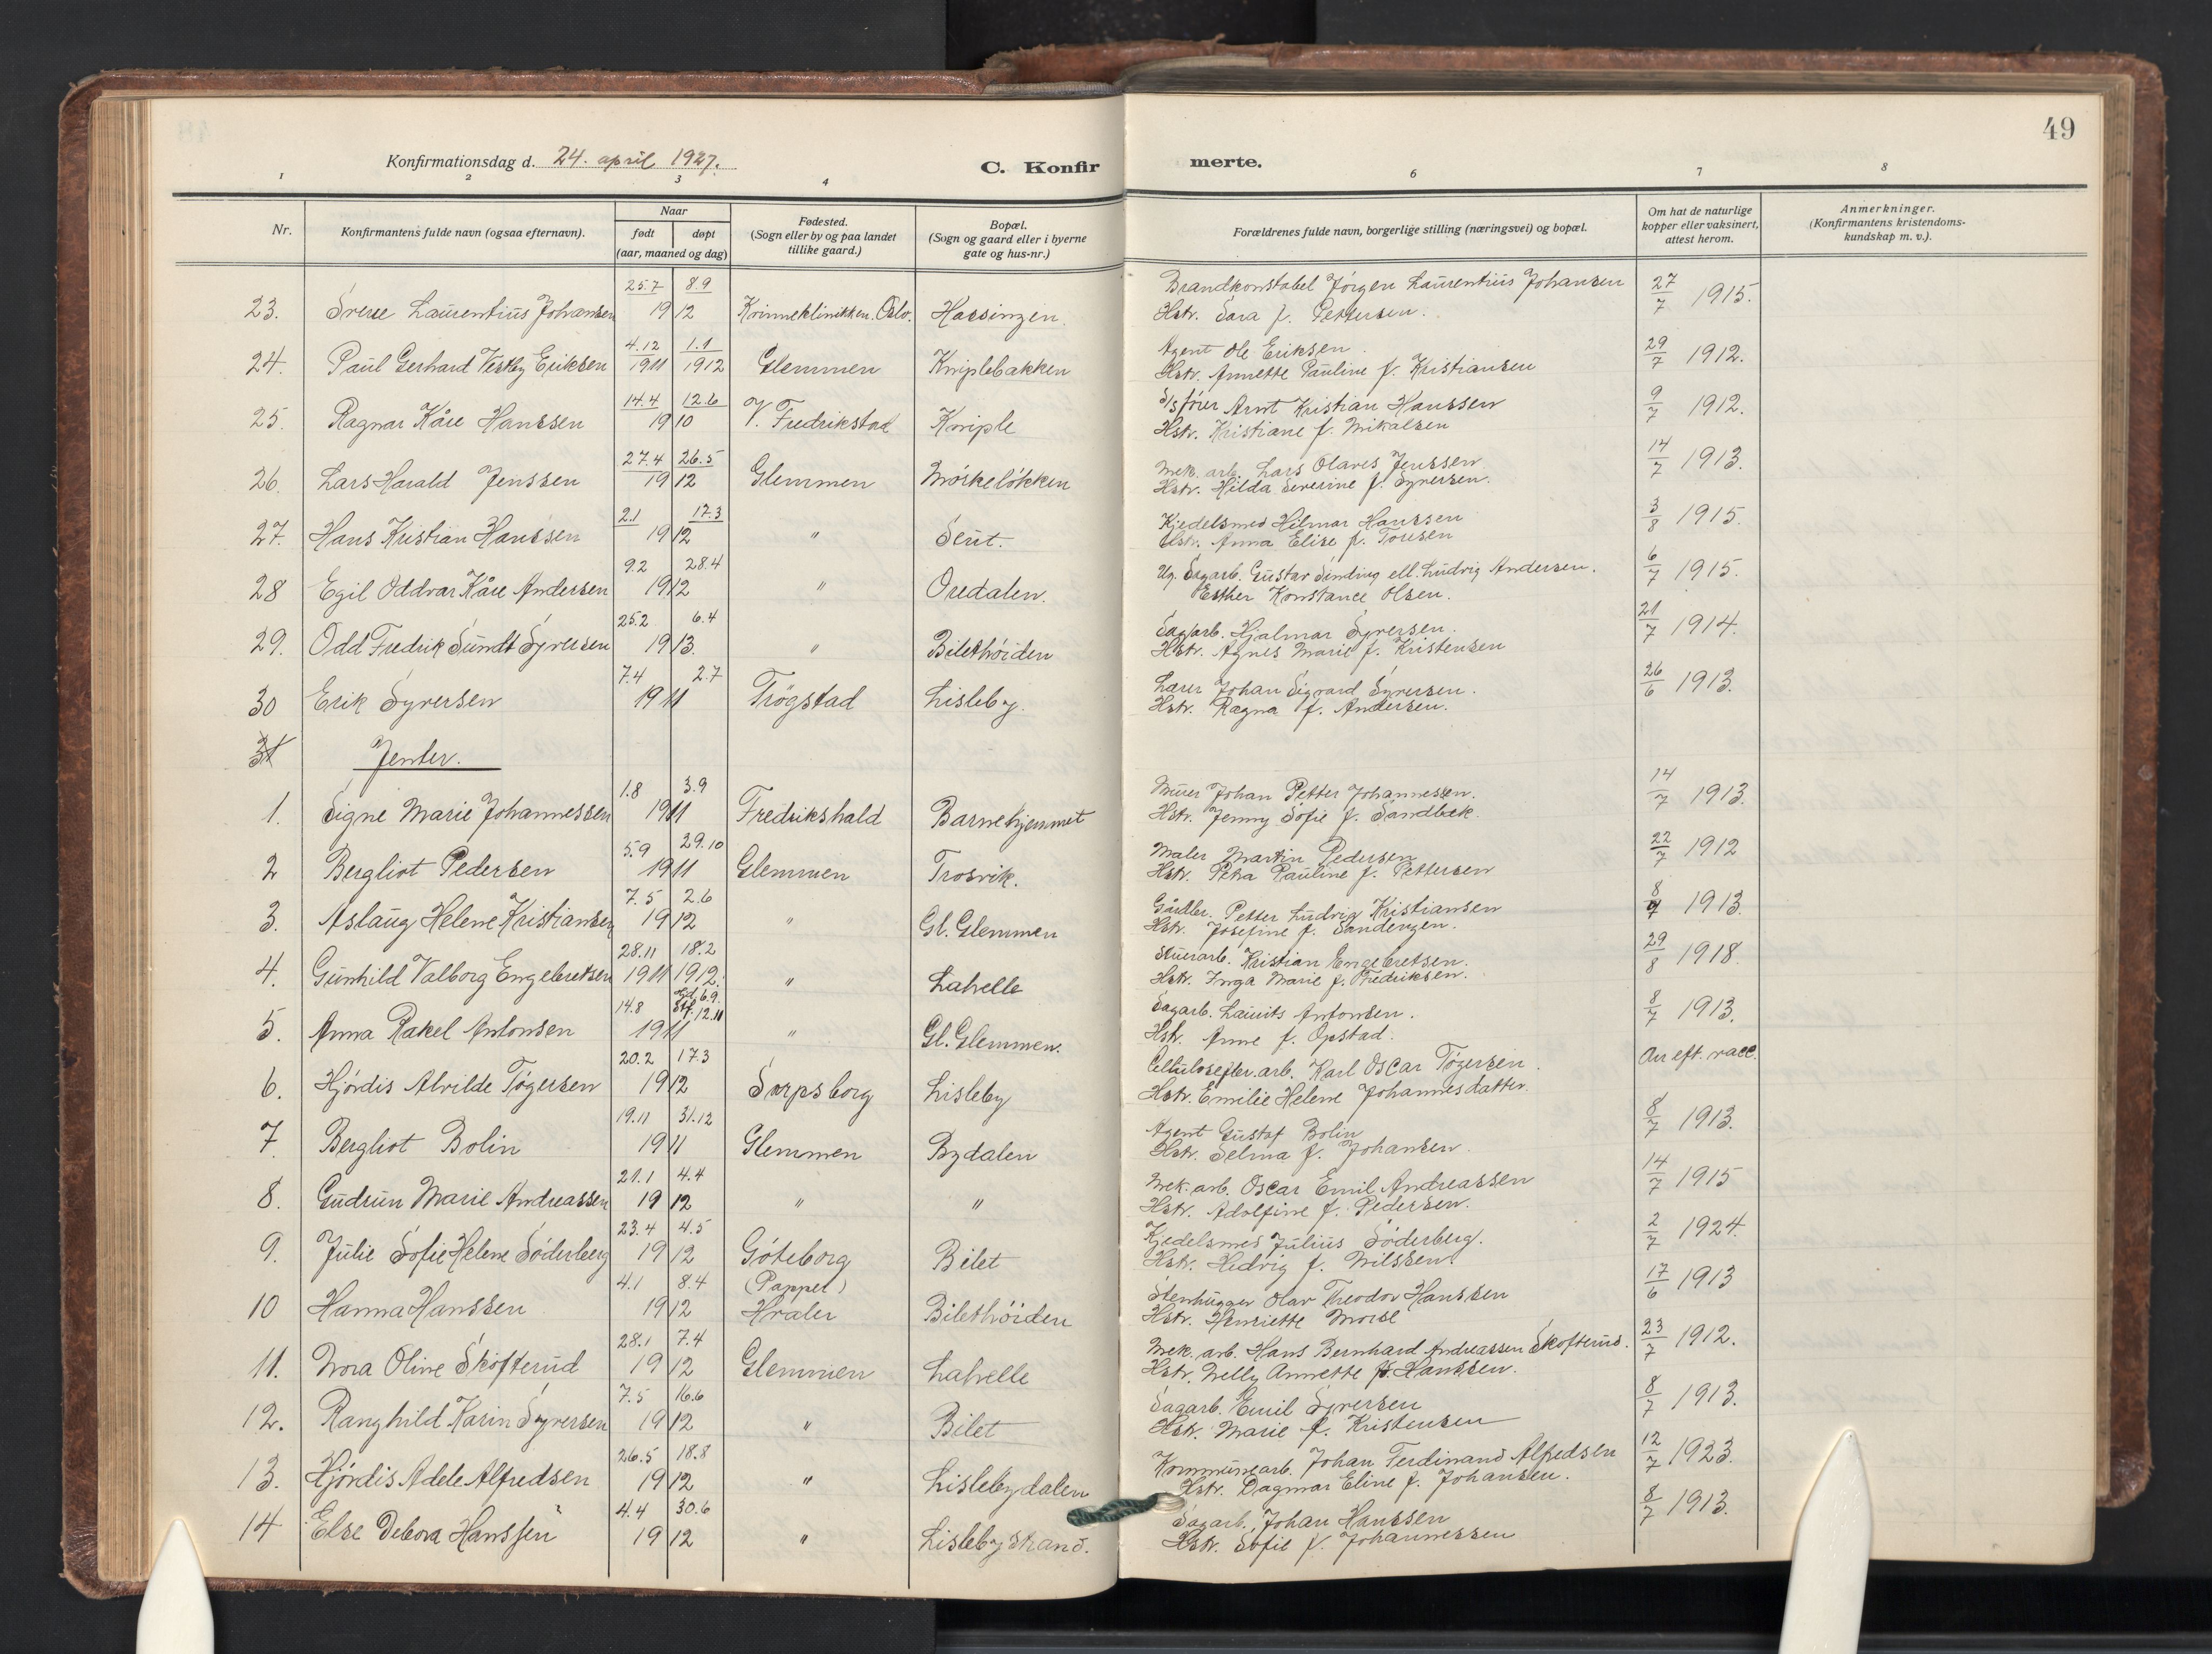 49
Konfirmationsdag d. 24. april 1927.
C. Konfirmerte.
1 2 3 4 6 7 8
Nr.
Konfirmantens fulde navn (ogsaa efternavn).
Naar
født døpt
(aar, maaned og dag)
Fødested.
(Sogn eller by og paa landet
tillike gaard.)
Bopæl.
(Sogn og gaard eller i byerne
gate og hus-nr.)
Forældrenes fulde navn, borgerlige stilling (næringsvei) og bopæl.
Om hat de naturlige
kopper eller vaksinert,
attest herom.
Anmerkninger.
(Konfirmantens kristendoms-
kundskap m. v.).
25.7 8.9 Brandkonstabel Jörgen Laurentius Johansen
23. Sverre Laurentius Johansen 19 12 Kvinneklinikken. Oslo. Hassingen. Hstr. Sara f. Pettersen. 27/7 1915.
4.12 1.1 Agent Ole Eriksen
24. Paul Gerhard Vestby Eriksen 1911 1912 Glemmen Kniplebakken Hstr. Annette Pauline f. Kristiansen 29/7 1912.
14.4 12.6 S/s förer Arnt Kristian Hanssen
25. Ragnar Kåre Hanssen 19 10 V. Fredrikstad Kniple Hstr. Kristiane f. Mikalsen 9/7 1912.
27.4 26.5 Mek. arb. Lars Olares Jenssen
26. Lars Harald Jenssen 19 12 Glemmen Mörkelökken Hstr. Hilda Severine f. Syversen. 14/7 1913.
2.1 17.3 Kjedelsmed Hilmar Hanssen
27. Hans Kristian Hanssen 19 12 " Seut. Hstr. Anna Elise f. Toresen 3/8 1915.
9.2 28.4 Ug. Sagarb. Gustav Sinding ell. Ludvig Andersen.
28 Egil Oddvar Kåre Andersen 19 12 " Oredalen. Esther Konstance Olsen. 6/7 1915.
25.2 6.4 Sagarb. Hjalmar Syversen.
29. Odd Fredrik Sundt Syversen 19 13. " Bilethöiden Hstr. Agnes Marie f. Kristensen 21/7 1914.
7.4 2.7 Lærer Johan Sigvard Syversen.
30 Erik Syversen 19 11 Trögstad Lisleby. Hstr. Ragna f. Andersen. 26/6 1913.
31 Jenter.
1.8 3.9 Murer Johan Petter Johannessen.
1. Signe Marie Johannessen 1911 Fredrikshald Barnehjemmet Hstr. Jenny Sofie f. Sandbæk. 14/7 1913.
5.9 29.10 Maler Martin Pedersen
2 Bergliot Pedersen 1911 Glemmen Trosvik. Hstr. Petra Pauline f. Pettersen 22/7 1912
7.5 2.6 Gårdbr. Petter Ludvig Kristiansen
3. Aslaug Helene Kristiansen 19 12 " Gl. Glemmen Hstr. Josefine f. Sandengen. 8/7 1913.
28.11 18.2 Stuerarb. Kristian Engebretsen.
4. Gunhild Valborg Engebretsen 1911 1912. " Lahelle Hstr. Inga Marie f. Fredriksen. 29/8 1918.
14.8 hjd. 6.9. Stf. 12.11 Sagarb. Laurits Antonsen.
5. Anna Rakel Antonsen 1911 " Gl. Glemmen. Hstr. Anne f. Opstad. 8/7 1913.
20.2 17.3 Cellulosefbr. arb. Karl Oscar Tögersen.
6. Hjördis Alvilde Tögersen 19 12 Sarpsborg Lisleby Hstr. Emilie Helene Johannesdatter. An eft. vacc.
19.11 31.12 Agent Gustaf Bolin
7. Bergliot Bolin 1911 Glemmen Bydalen Hstr. Selma f. Johansen. 8/7 1913.
21.1 4.4 Mek. arb. Oscar Emil Andreassen
8. Gudrun Marie Andreassen 19 12 " " Hstr. Adolfine f. Pedersen. 14/7 1915
23.4 4.5 Kjedelsmed Julius Söderberg.
9. Julie Sofie Helene Söderberg 19 12 Göteborg Bilet Hstr. Hedvig f. Nilssen. 2/7 1924.
4.1 8.4 (Papper) Stenhugger Olav Theodor Hanssen
10 Hanna Hanssen 19 12 Hvaler Bilethöiden Hstr. Henriette Morse 17/6 1913
28.1 7.4 Mek. arb. Hans Bernhard Andreassen Skofterud.
11. Nora Oline Skofterud 19 12 Glemmen Lahelle Hstr. Nelly Annette f. Hanssen. 23/7 1912.
7.5 16.6 Sagarb. Emil Syversen
12. Ranghild Karin Syversen 19 12 " Bilet Hstr. Marie f. Kristensen 8/7 1913.
26.5 18.8 Kommunearb. Johan Ferdinand Alfredsen
13. Hjördis Adele Alfredsen 19 12 " Lislebydalen Hstr. Dagmar Eline f. Johansen. 12/7 1923.
4.4 30.6 Sagarb. Johan Hanssen
14 Else Debora Hanssen 19 12 " Lisleby Strand. Hstr. Sofie f. Johannessen 8/7 1913.